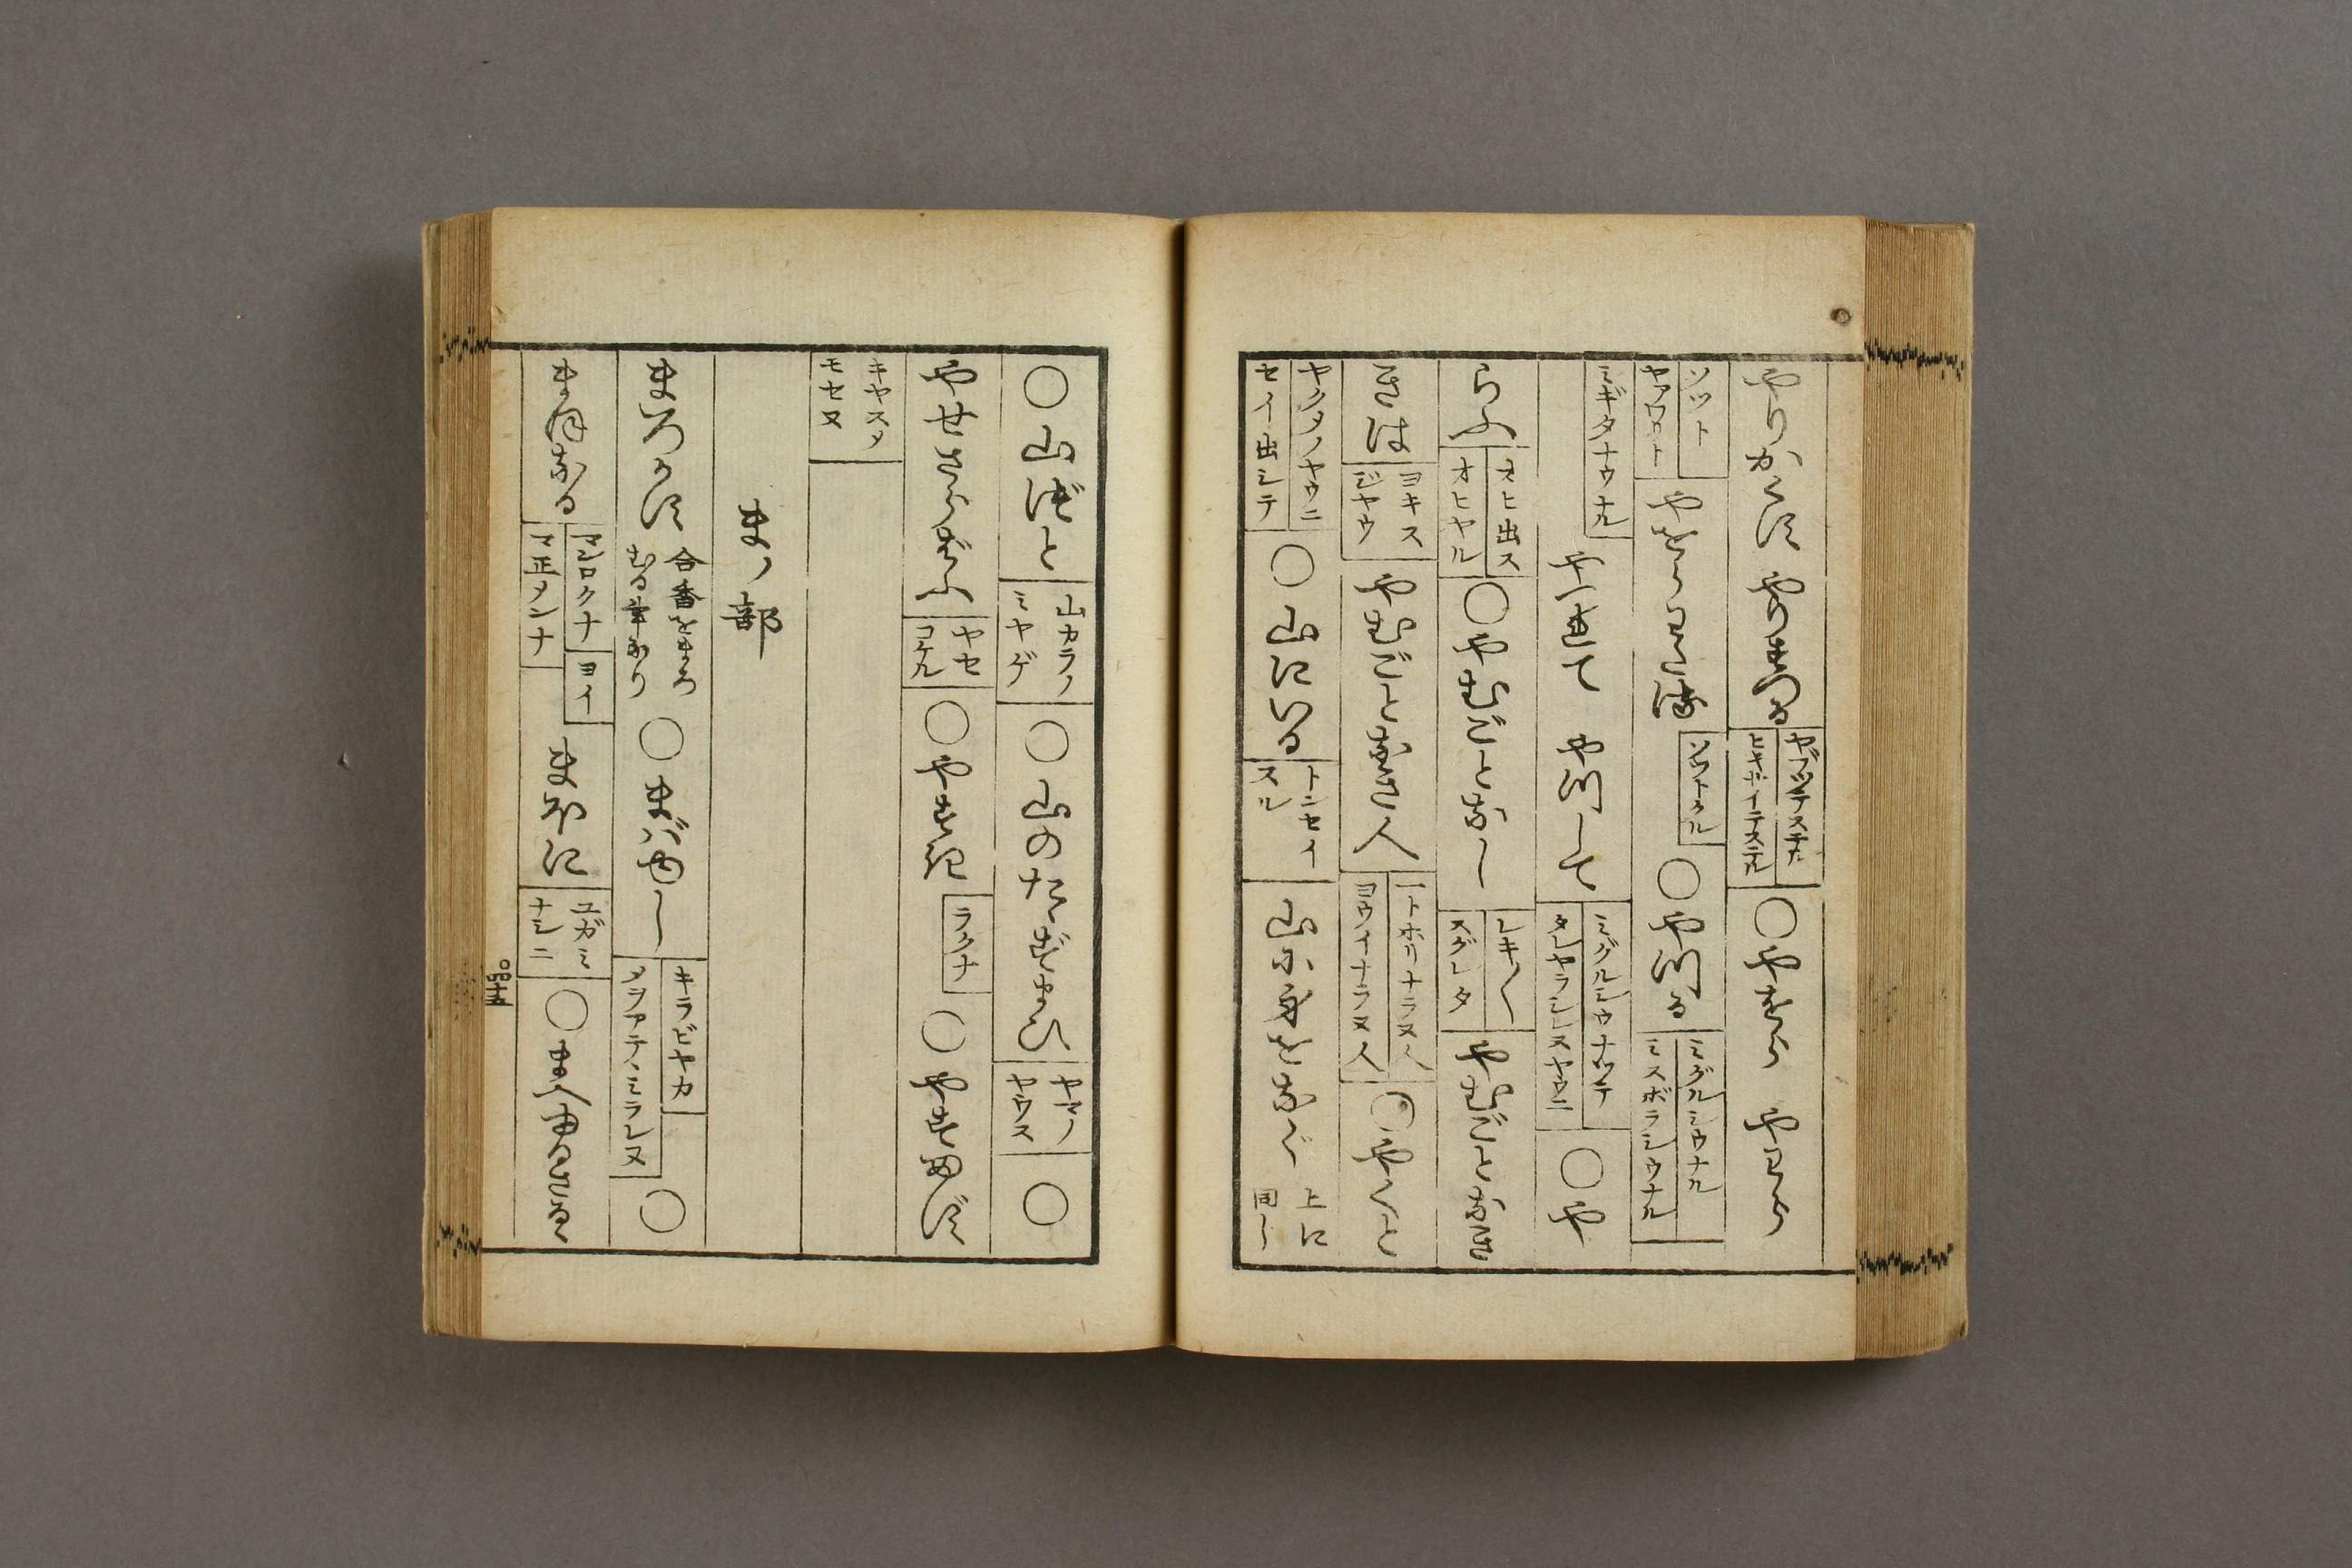 やりかくす やりまつる ヤブツテステル ヒキサイテステル ○やをら やわら
ソツト ヤアワリト やをらわたす ソツトクル ○やつる ミグルシウナル ミスボラシウナル
ミギタナウナル やつれて やつして ミグルシウナツテ タレヤラシレヌヤウニ ○や
らふ オヒ出ス オヒヤル ○やむごとなし レキ〳〵 スグレタ やむごとなき
きは ヨキス ジヤウ やむごとなき人 一トホリナラヌ人 ヨウイナラヌ人 ○やくと
ヤクメノヤウニ セイ出シテ ○山にいる トンセイ スル 山にみをなぐ 上に 同し
○山づと 山カラノ ミヤゲ ○山のたゝずまひ ヤマノ ヤウス ○
やせさらぼふ ヤセ コケル ○やすき ラクナ ○やすめず
キヤスメ モセヌ
まノ部
まろかす 合香をまろ むる事なり ○まばゆし キラビヤカ メヲアテヽミラレヌ ○
まほなる マンロクナ マ正メンナ ヨイ まほに ユガミ ナシニ ○まへ申さるゝ